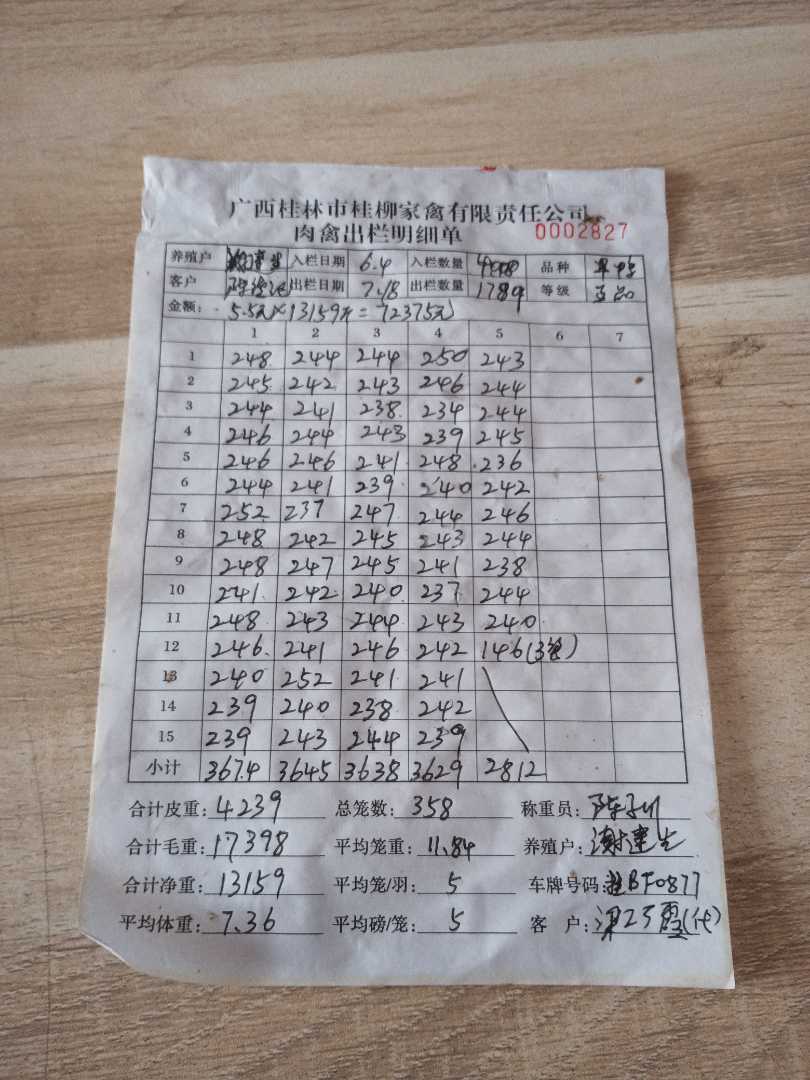 广西桂林市桂柳家禽有限责任公司
肉禽出栏明细单 0002827
养殖户 谢建生 入栏日期 6.4 入栏数量 品种
客户 出栏日期 7.18 出栏数量 1789 等级 正品
金额: 5.5元×13159斤=72375元
1 2 3 4 5 6 7
1 248 244 244 250 243
2 245 242 243 246 244
3 244 241 238 234 244
4 246 244 243 239 245
5 246 246 241 248 236
6 244 241 239 240 242
7 252 237 247 244 246
8 248 242 245 243 244
9 248 247 245 241 238
10 241 242 240 237 244
11 248 243 244 243 240
12 246 241 246 242 146(3笼)
13 240 252 241 241
14 239 240 238 242
15 239 243 244 239
小计 3674 3645 3638 3629 2812
合计皮重: 4239 总笼数: 358 称重员:
合计毛重: 17398 平均笼重: 11.84 养殖户: 谢建生
合计净重: 13159 平均笼/羽: 5 车牌号码: 桂BF0877
平均体重: 7.36 平均磅/笼: 5 客户: (代)